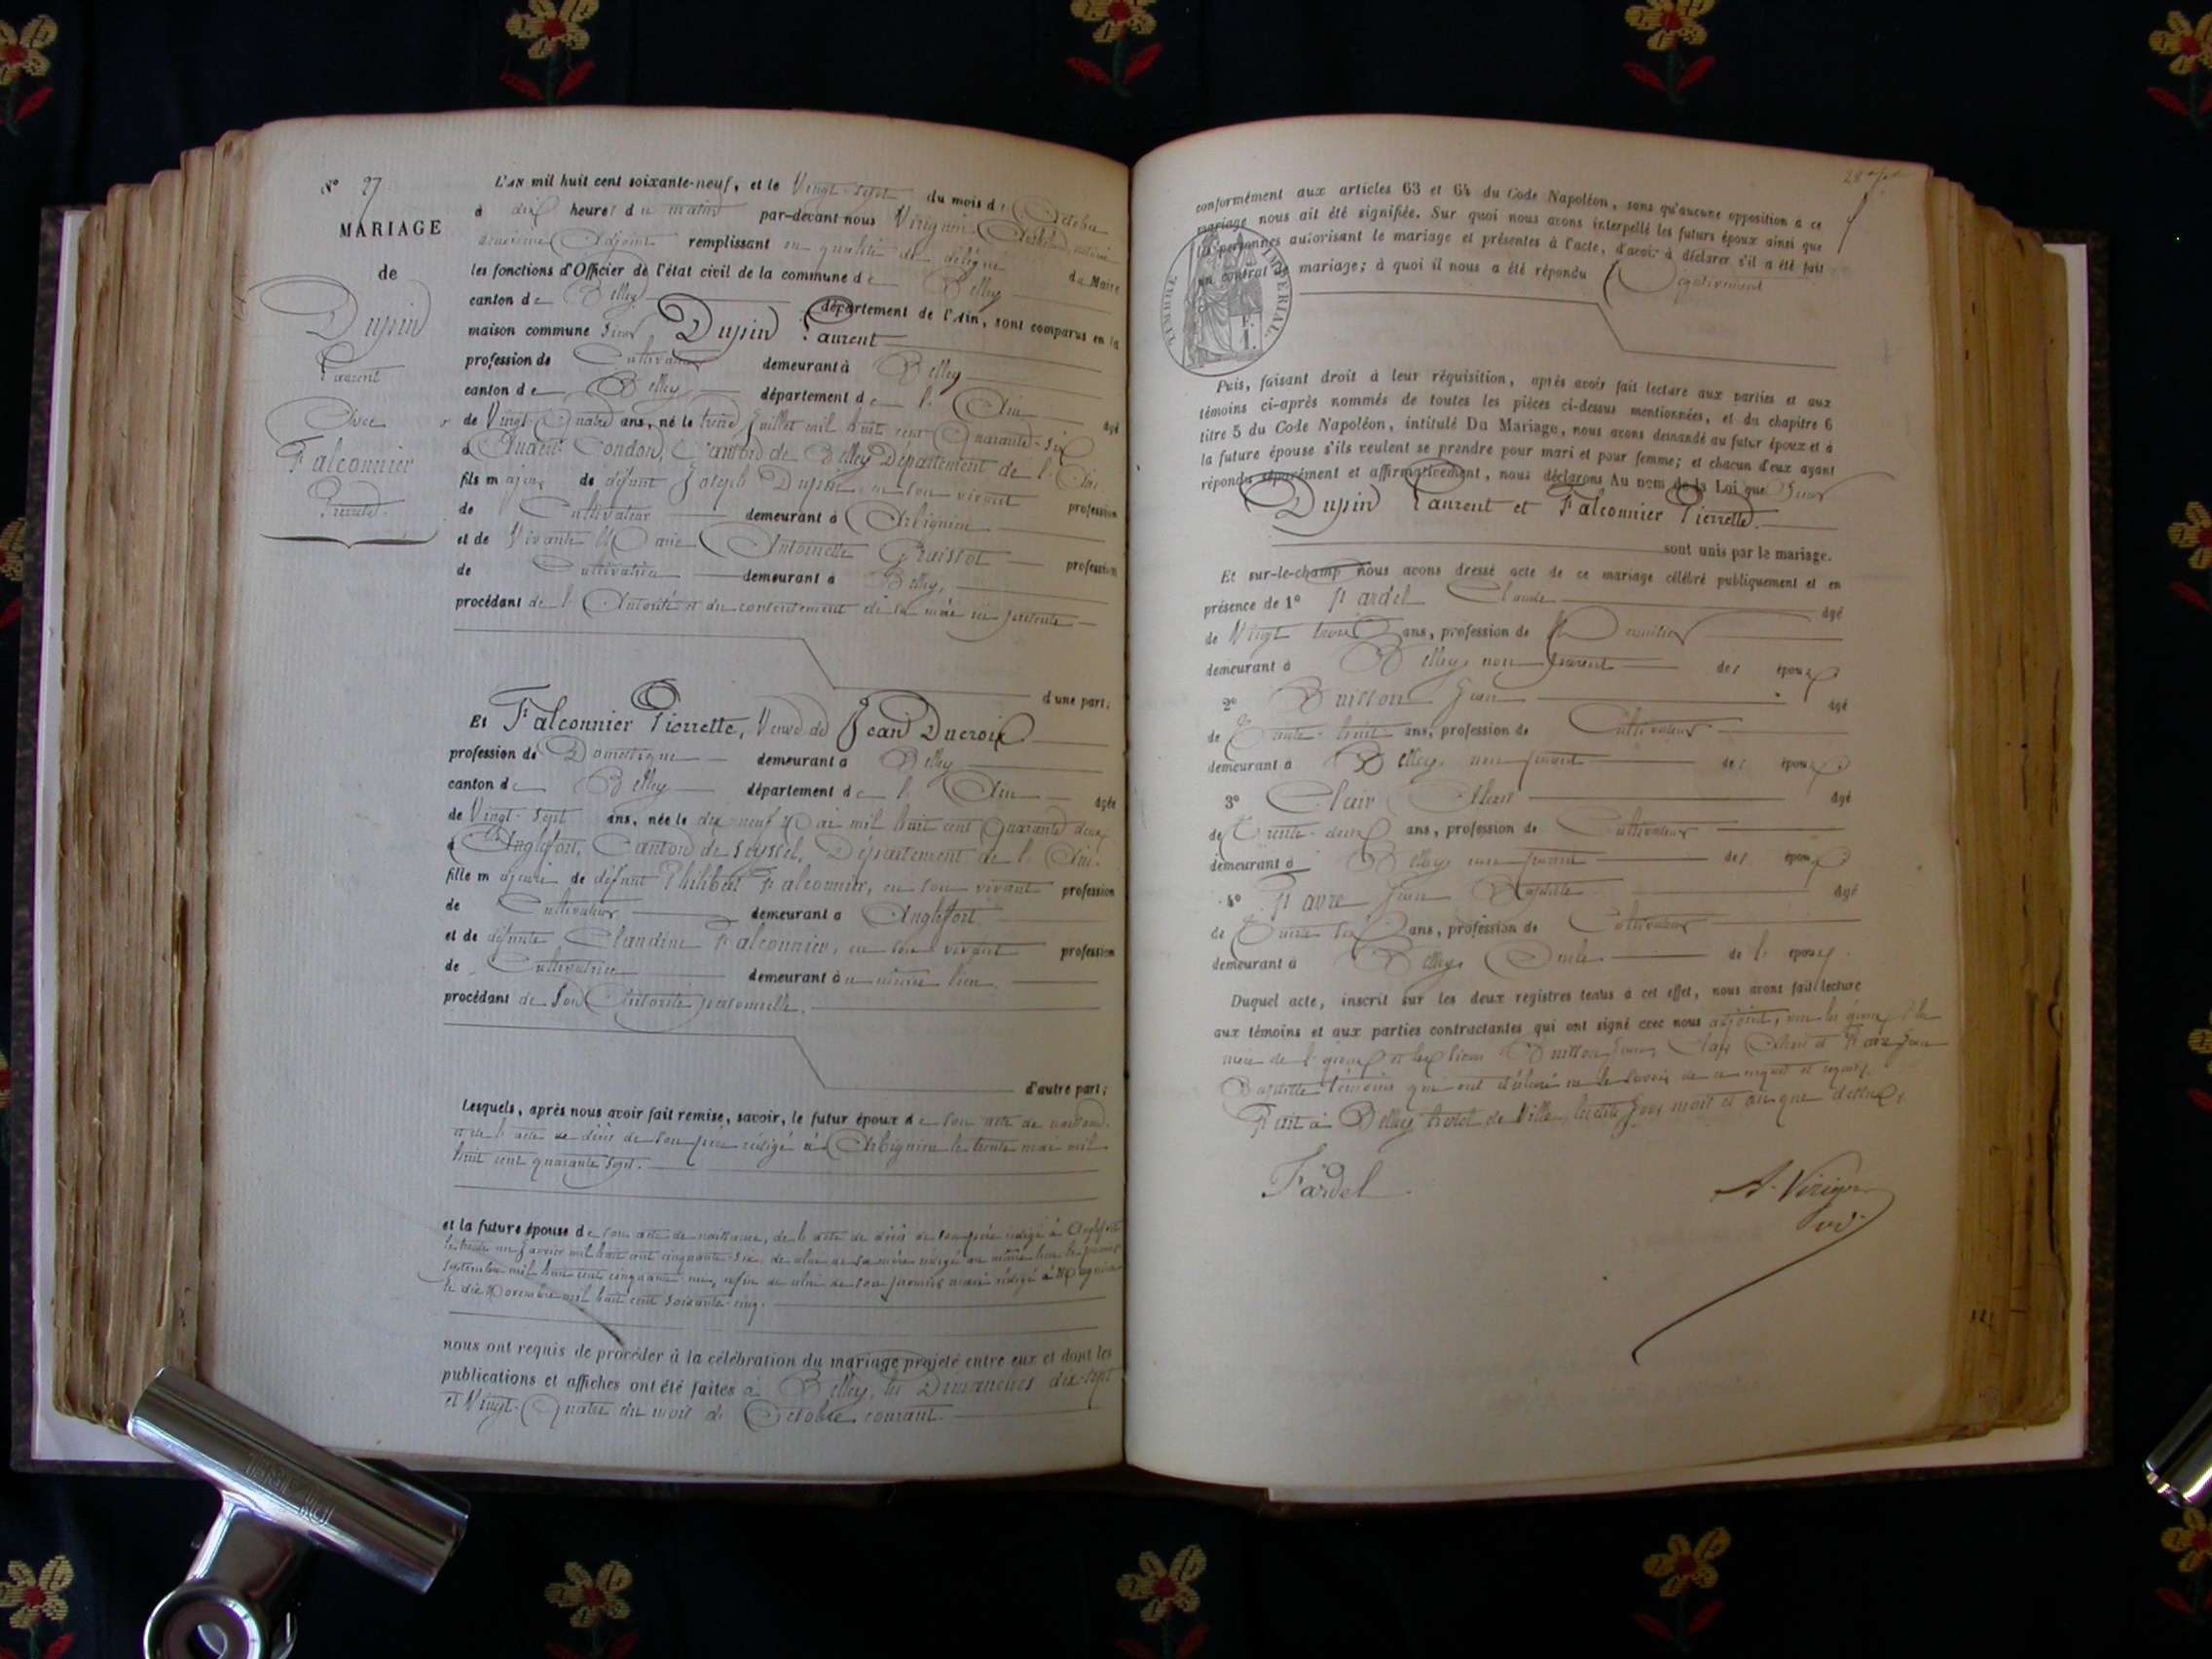 N° 27
MARIAGE
de
Dupin
Laurent
Avec
Falconnier
Pierrette
L'AN mil huit cent soixante-neuf, et le Vingt-Sept du mois d' Octobre
à dix heures du matin par-devant nous Virignin notaire
deuxième Adjoint remplissant en qualité de délégué du Maire
les fonctions d'Officier de l'état civil de la commune de Belley
canton de Belley département de l'Ain, sont comparus en la
maison commune Sieur Dupin Laurent
profession de Cultivateur demeurant à Belley
canton de Belley département de l'Ain âgé
de Vingt-Quatre ans, né le treize Juillet mil huit cent Quarante-Six
à Andert-Condon, Canton de Belley Département de l'Ain.
fils majeur de défunt Joseph Dupin, en son vivant profession
de Cultivateur demeurant à Arbignieu
et de Vivante Marie Antoinette profession
de Cultivatrice demeurant à Belley,
procédant de l'Autorité et du consentement de sa mère ici présente
d'une part;
Et Falconnier Pierrette, Veuve de Jean Ducroix
profession de Domestique demeurant à Belley
canton de Belley département de l'Ain âgée
de Vingt-Sept ans, née le dix-neuf Mai mil huit cent Quarante deux
à Anglefort, Canton de Seyssel, Département de l'Ain.
fille majeure de défunt Philibert Falconnier, en son vivant profession
de Cultivateur demeurant à Anglefort
et de défunte Claudine Falconnier, en son vivant profession
de Cultivatrice demeurant au même lieu
procédant de Son Autorité personnelle.
d'autre part;
Lesquels, après nous avoir fait remise, savoir, le futur époux de son acte de naissance
et de l'acte de décès de son père rédigé à Arbignieu le trente mai mil
huit cent quarante sept.
et la future épouse de son acte de naissance, de l'acte de décès de son père rédigé à Anglefort
le trente un Janvier mil huit cent cinquante-six, de celui de sa mère rédigé au même lieu le premier
Septembre mil huit cent cinquante un, enfin de celui de son premier mari rédigé à Magnieu
le dix Novembre mil huit cent soixante-cinq.
nous ont requis de procéder à la célébration du mariage projeté entre eux et dont les
publications et affiches ont été faites à Belley, les Dimanches dix-sept
et Vingt-Quatre du mois d'Octobre courant.
conformément aux articles 63 et 64 du Code Napoléon, sans qu'aucune opposition à ce
mariage nous ait été signifiée. Sur quoi nous avons interpellé les futurs époux ainsi que
les personnes autorisant le mariage et présentes à l'acte, d'avoir à déclarer s'il a été fait
un contrat de mariage; à quoi il nous a été répondu Négativement
TIMBRE IMPERIAL
Puis, faisant droit à leur réquisition, après avoir fait lecture aux parties et aux
témoins ci-après nommés de toutes les pièces ci-dessus mentionnées, et du chapitre 6
titre 5 du Code Napoléon, intitulé Du Mariage, nous avons demandé au futur époux et à
la future épouse s'ils veulent se prendre pour mari et pour femme; et chacun d'eux ayant
répondu séparément et affirmativement, nous déclarons Au nom de la Loi que Sieur
Dupin Laurent et Falconnier Pierrette.
sont unis par le mariage.
Et sur-le-champ nous avons dressé acte de ce mariage célébré publiquement et en
présence de 1° Fardel Claude âgé
de Vingt trois ans, profession de
demeurant à Belley, non parent des époux
2° Buisson Jean âgé
de Trente-huit ans, profession de Cultivateur
demeurant à Belley, non parent des époux
3° Clair Alexis âgé
de Trente-deux ans, profession de Cultivateur
demeurant à Belley non parent des époux
4° Favre Jean Baptiste âgé
de ans, profession de Cultivateur
demeurant à Belley, Oncle de l' épouse.
Duquel acte, inscrit sur les deux registres tenus à cet effet, nous avons fait lecture
aux témoins et aux parties contractantes qui ont signé avec nous adjoint, non les époux, la
mère de l'époux et les sieurs Buisson Jean, Clair Alexis et Favre Jean
Baptiste témoins qui ont déclaré ne le savoir de ce enquis et requis.
Fait à Belley hôtel de Ville, les dits Jour, mois et an que dessus.
Fardel
A. Virignin